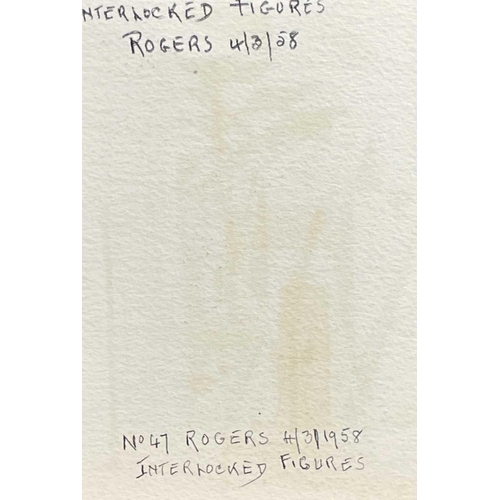 INTERLOCKED FIGURES
ROGERS 4/3/58
No 47 ROGERS 4/3/1958
INTERLOCKED FIGURES